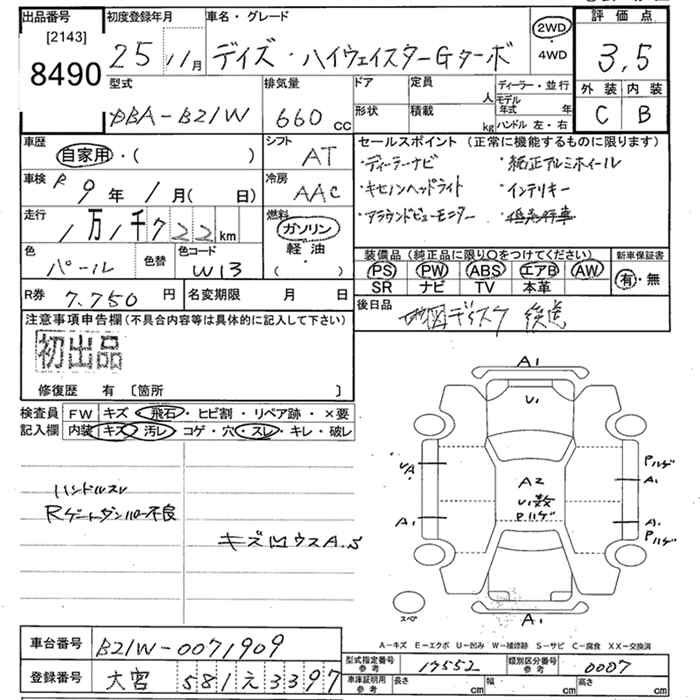 出品番号
[2143]
8490
初度登録年月
25 11月
車名・グレード
デイズ・ハイウェイスターGターボ
2WD
・
4WD
評価点
3.5
外装 内装
C B
型式
DBA-B21W
排気量
660 cc
ドア
形状
定員
人
積載
kg
ディーラー・並行
モデル年式 年
ハンドル 左・右
車歴
自家用・( )
シフト
AT
車検
R 9年 1月( 日)
冷房
AAC
走行
1万1千722km
燃料
ガソリン
軽油
( )
色
パール
色替
色コード
W13
R券
7,750円
名変期限 月 日
セールスポイント (正常に機能するものに限ります)
・ディーラーナビ ・純正アルミホイール
・キセノンヘッドライト ・インテリキー
・アラウンドビューモニター
装備品(純正品に限り〇をつけてください)
PS PW ABS エアB AW
SR ナビ TV 本革
新車保証書
有・無
後日品
地図ディスク 後送
注意事項申告欄(不具合内容等は具体的に記入して下さい)
初出品
修復歴 有 〔箇所 〕
検査員
記入欄
FW キズ・飛石・ヒビ割・リペア跡・×要
内装 キズ・汚レ・コゲ・穴・スレ・キレ・破レ
ハンドルスレ
Rゲートダンパー不良
キズ凹ウスA.S
A1
U1
UA
A1
A2
U1数
Pハゲ
Pハゲ
A1
A1
Pハゲ
スペア
A1
A-キズ E-エクボ U-凹み W-補修跡 S-サビ C-腐食 XX-交換済
車台番号
B21W-0071909
登録番号
大宮 581 え 3397
型式指定番号
参考
17552
類別区分番号
参考
0007
車庫証明用
参考
長さ cm 幅 cm 高さ cm